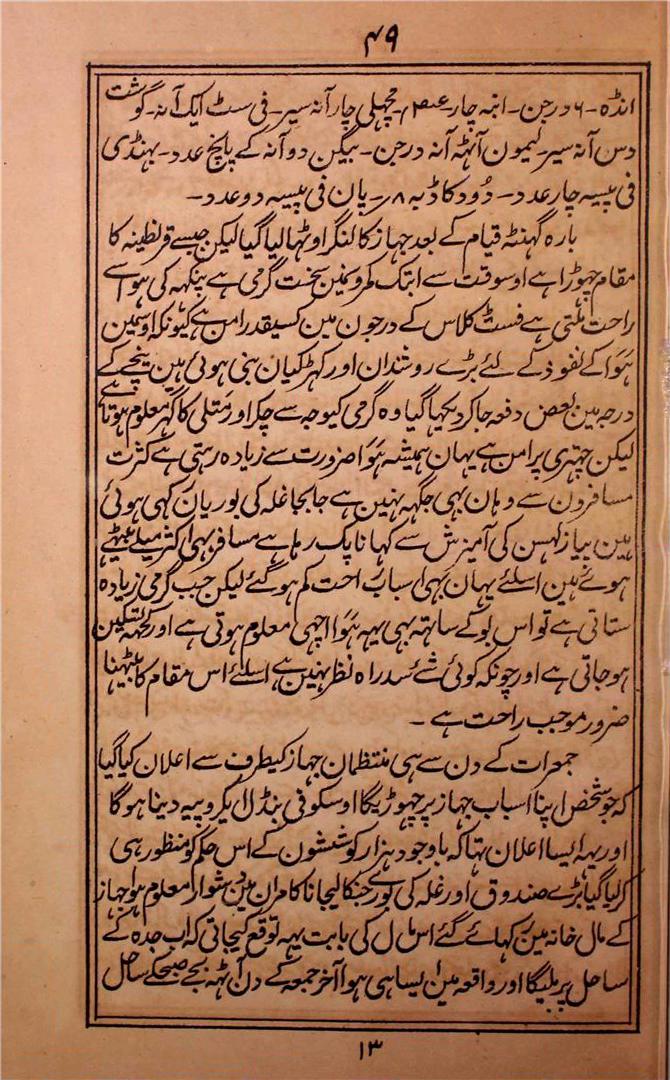 ۴۹
انڈہ - ۶ درجن - انبہ چار - مچھلی چار آنہ سیر - فی سٹ ایک آنہ - گوشت
دس آنہ سیر - لیمون آٹہہ آنہ درجن - بیگن دو آنہ کے پانچ عدد - بہنڈی
فی پیسہ چار عدد - دُود کا ڈبہ ۸ر - پان فی پیسہ دو عدد -
بارہ گہنٹہ قیام کے بعد جہاز کا لنگر اوٹہا لیا گیا لیکن جیسے قرنطینہ کا
مقام چہوڑا ہے اوسوقت سے ابتک کمرونمین سخت گرمی ہے پنکہہ کی ہوا سے
راحت ملتی ہے فسٹ کلاس کے درجون مین کسیقدر امن ہے کیونکہ اوسمین
ہَوَا کے نفوذ کے لئے بڑے روشندان اور کہڑکیان بنی ہوئی ہین نیچے کے
درجہ مین بعض دفعہ جا کر دیکہا گیا وہ گرمی کیوجہ سے چکر اور متلی کا گہر معلوم ہوتا ہے
لیکن چہتری پر امن ہے یہان ہمیشہ ہَوَا ضرورت سے زیادہ رہتی ہے کثرت
مسافرون سے وہان بہی جگہہ نہین ہے جابجا غلہ کی بوریان رکہی ہوئی
ہین پیاز لہسن کی آمیزش سے کہانا پک رہا ہے مسافر بہی اکثر میلے بیٹہے
ہوئے ہین اسلئے یہان بہی اسباب راحت کم ہو گئے لیکن جب گرمی زیادہ
ستاتی ہے تو اس بو کے ساتہہ بہی یہہ ہَوَا اچہی معلوم ہوتی ہے اور کچہہ تسکین
ہو جاتی ہے اور چونکہ کوئی شے سدراہ نظر نہین ہے اسلئے اس مقام کا بیٹہنا
ضرور موجب راحت ہے -
جمعرات کے دن سے ہی منتظمان جہاز کیطرف سے اعلان کیا گیا
کہ جو شخص اپنا اسباب جہاز پر چہوڑیگا اوسکو فی بنڈل ایکروپیہ دینا ہو گا
اور یہہ ایسا اعلان تہا کہ باوجود ہزار کوششون کے اس حکم کو منظور ہی
کر لیا گیا بڑے صندوق اور غلہ کی بورے جنکا لیجانا کامران مین دشوار معلوم ہوا جہاز
کے مال خانہ مین رکہائے گئے اس مال کی بابت یہہ توقع کیجاتی کہ اب جدہ کے
ساحل پر ملیگا اور واقعہ مین ایسا ہی ہوا آخر جمعہ کے دن آٹہہ بجے صبحکے ساحل
۱۳